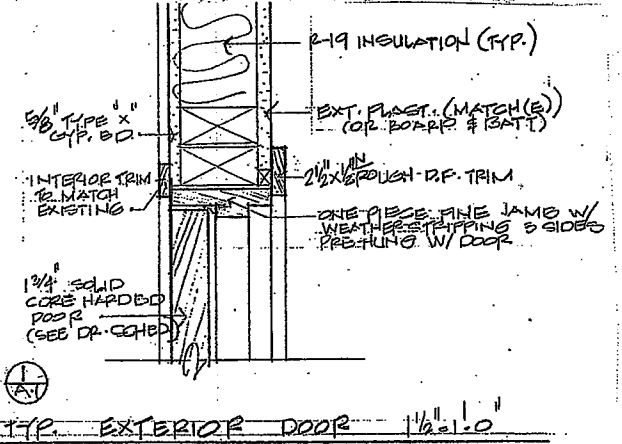 R-19 INSULATION (TYP.)
5/8" TYPE "X"
GYP. BD.
EXT. PLAST. (MATCH (E))
(OR BOARD & BATT)
INTERIOR TRIM
TO MATCH
EXISTING
ROUGH D.F. TRIM
ONE PIECE PINE JAMB W/
WEATHERSTRIPPING 3 SIDES
PRE-HUNG W/ DOOR
1 3/4" SOLID
CORE HARDBD
DOOR
(SEE DR. SCHED)
1
A-1
TYP. EXTERIOR DOOR 1½"=1'-0"